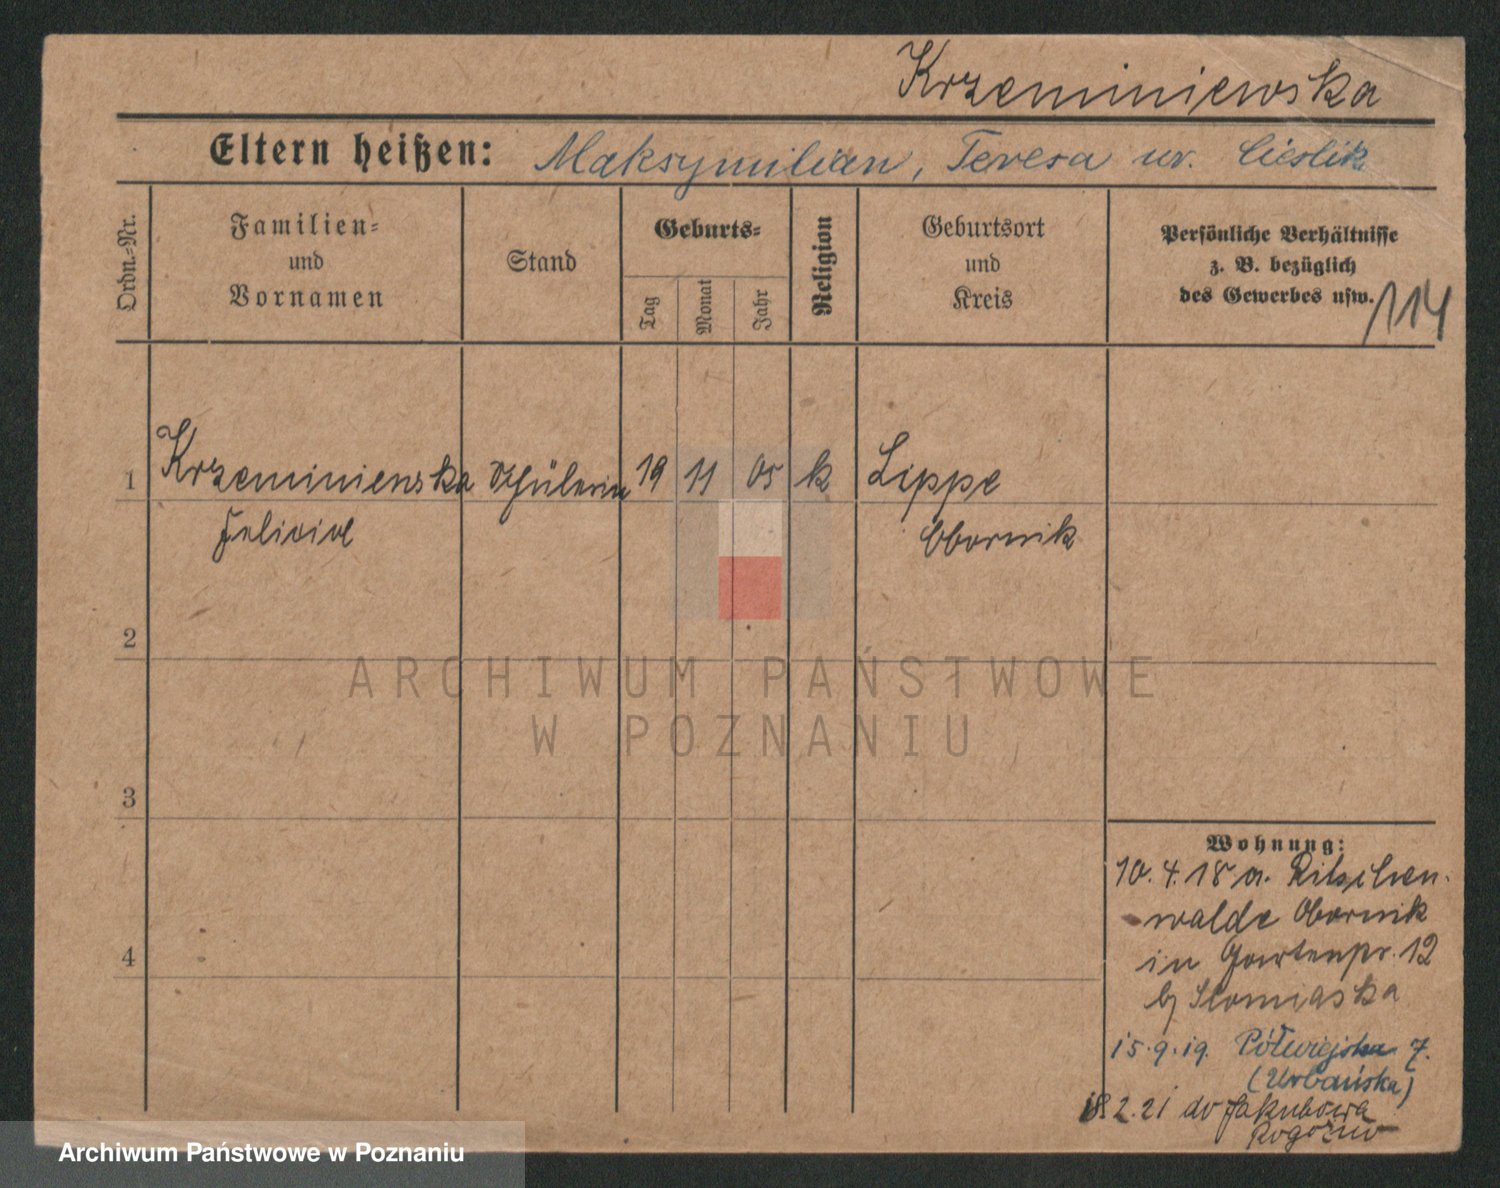 Krzeminiewska
Eltern heißen: Maksymilian, Teresa ur. Cieślik
Ordn.-Nr.
Familien- und Vornamen
Stand
Geburts-
Tag
Monat
Jahr
Religion
Geburtsort und Kreis
Persönliche Verhältnisse
z. B. bezüglich
des Gewerbes usw.
114
1 Krzeminiewska Schülerin 19 11 05 k Lippe
Felicia Obornik
2
ARCHIWUM PAŃSTWOWE
W POZNANIU
3
Wohnung:
10.4.18 a. Ritschen-
walde Obornik
in Gartenstr. 12
b/ Slomiaska
4
15.9.19. Półwiejska 7.
(Urbańska)
18.2.21 do Jakubowa
Rogoźno
Archiwum Państwowe w Poznaniu